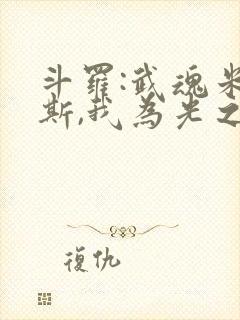 斗羅:武魂米
斯,我為光之
復仇